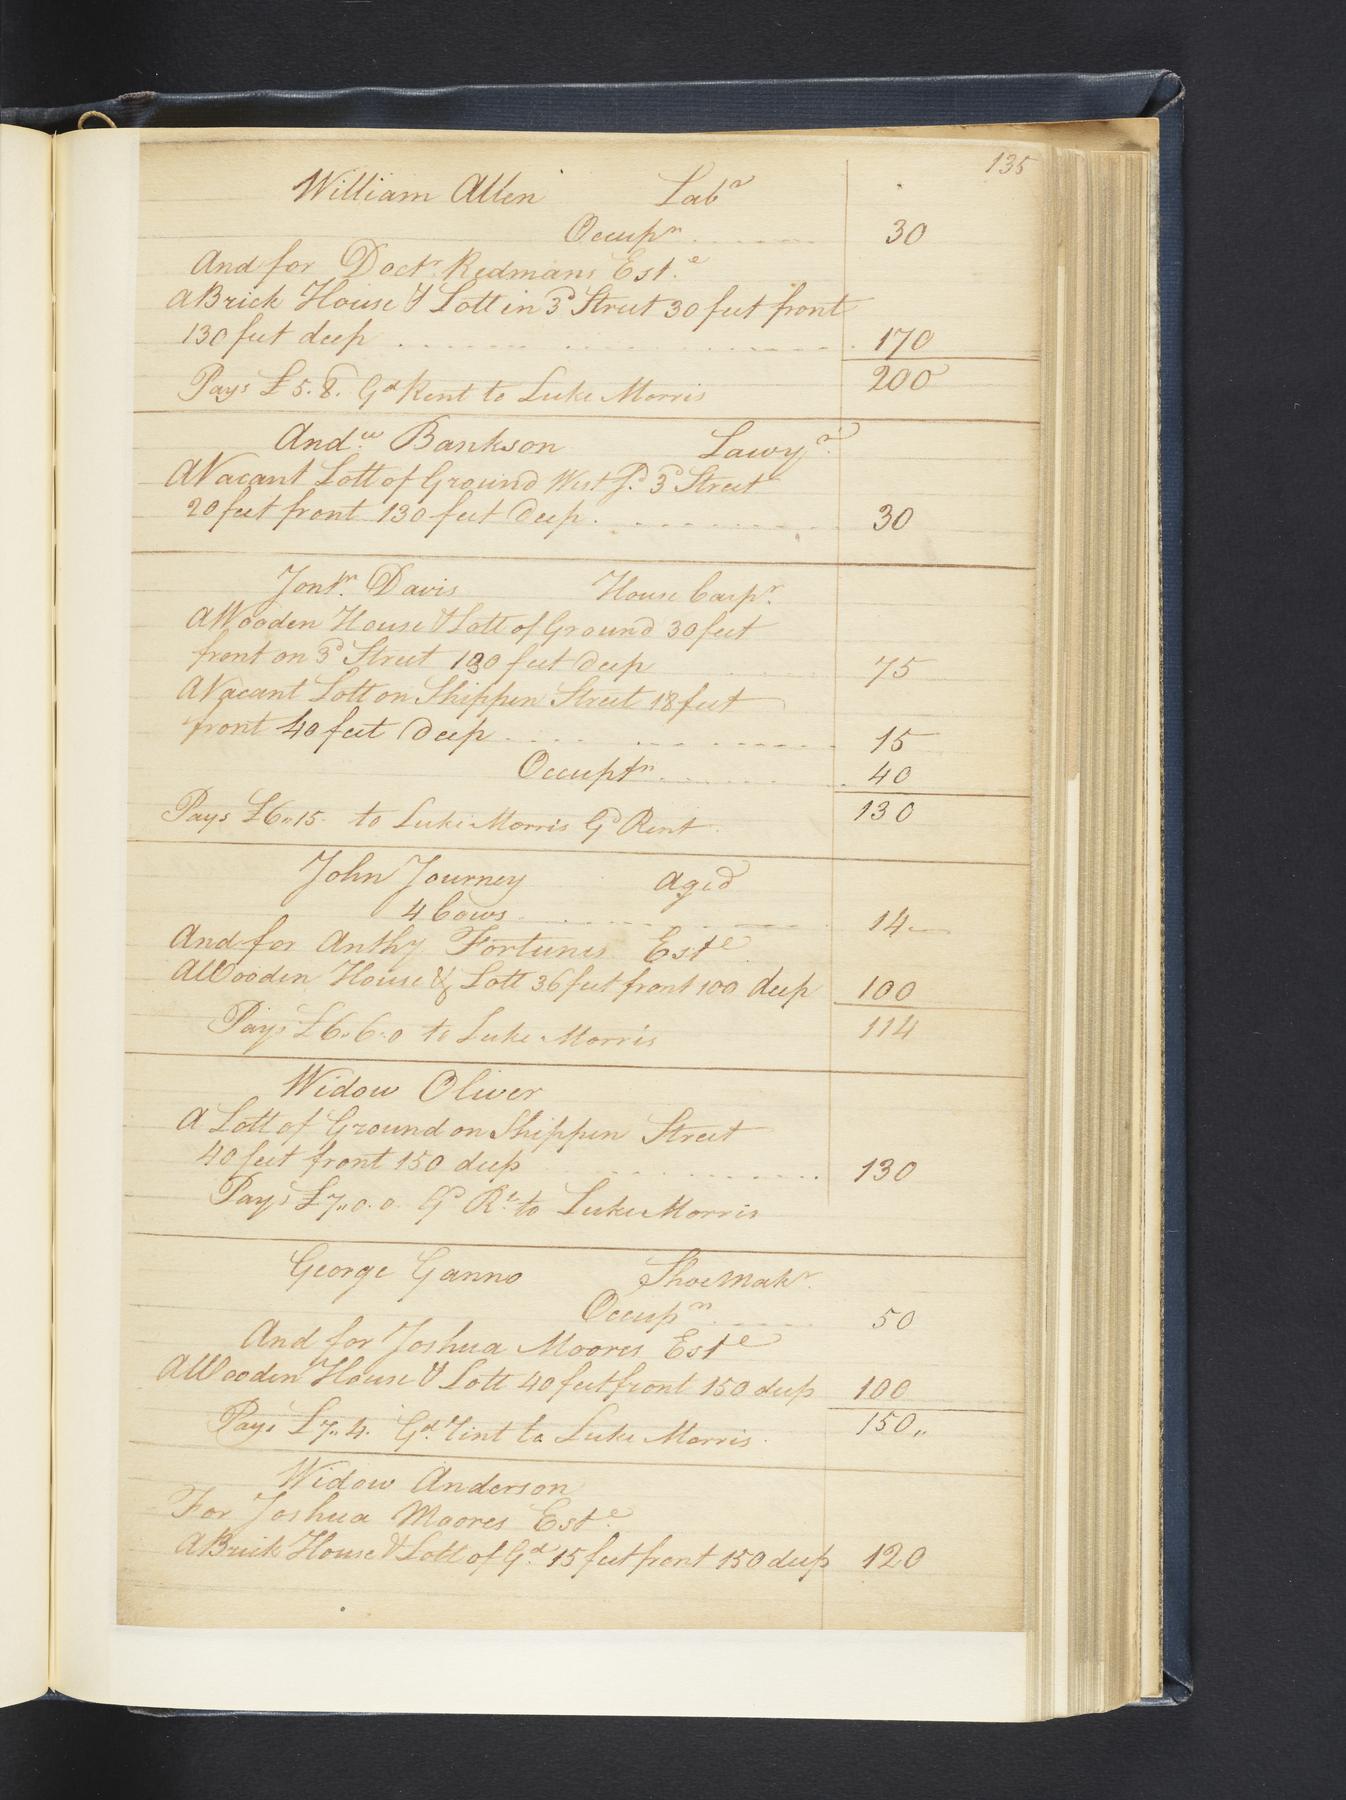 135
William Allen Labr
Occupn 30
And for Doctr Redmans Este
A Brick House & Lott in 3d Street 30 feet front
130 feet deep 170
200
Pays £5.8. Gd Rent to Luke Morris
Andw Bankson Lawyr
A Vacant Lott of Ground West Sd 3d Street
20 feet front 130 feet Deep 30
Jontn Davis House Carpr
A Wooden House & Lott of Ground 30 feet
front on 3d Street 130 feet Deep 75
A Vacant Lott on Shippen Street 18 feet
front 40 feet Deep 15
Occuptn 40
130
Pays £6,,15. to Luke Morris Gd Rent
John Journey Aged
4 Cows 14
And for Anthy Fortunes Este
A Wooden House & Lott 36 feet front 100 deep 100
114
Pays £6..6.0 to Luke Morris
Widow Oliver
A Lott of Ground on Shippen Street
40 feet front 150 deep 130
Pays £7,,0.0 Gd Rt to Luke Morris
George Ganno Shoemakr
Occupn 50
And for Joshua Moores Este
A Wooden House & Lott 40 feet front 150 deep 100
150,,
Pays £7,,4. Gd Rent to Luke Morris
Widow Anderson
For Joshua Moores Este
A Brick House & Lott of Gd 15 feet front 150 deep 120